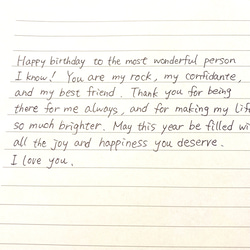 Happy birthday to the most wonderful person
I know! You are my rock, my confidante,
and my best friend. Thank you for being
there for me always, and for making my life
so much brighter. May this year be filled wi
all the joy and happiness you deserve.
I love you.